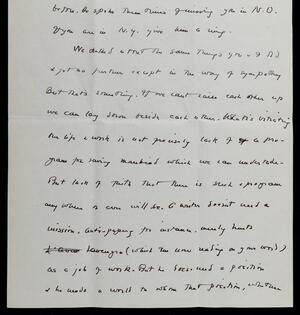 before. He spoke three times of missing you in N.O.
If you are in N.Y. give him a ring.
We talked about the same things you & I did
& got no further except in the way of sympathy
But that's something. If we can't raise each other up
we can lay down beside each other. What's vitiating
the life & work is not precisely lack of a pro-
gram for saving mankind which we can undertake.
But lack of faith that there is such a program
anywhere or ever will be. A writer doesn't need a
mission, anti-popery for instance merely hurts
(which I'm now reading on your word)
as a job of work. But he does need a position
& he needs a world in whom that position, whether